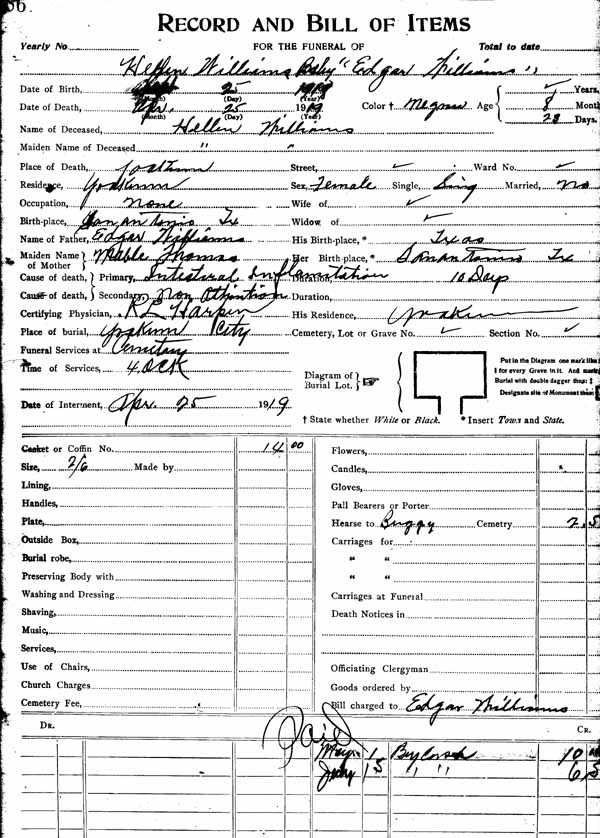 RECORD AND BILL OF ITEMS
Yearly No. FOR THE FUNERAL OF Total to date
Hellen Williams Baby "Edgar Williams"
Date of Birth, 2 1919 Years,
(Month) (Day) (Year)
Date of Death, Apr. 25 1919 Color † Negroe Age 8 Month
(Month) (Day) (Year) 23 Days.
Name of Deceased, Hellen Williams
Maiden Name of Deceased " "
Place of Death, Yoakum Street, ✓ Ward No. ✓
Residence, Yoakum Sex, Female Single, Sing Married, No
Occupation, None Wife of ✓
Birth-place, San Antonio Tx Widow of ✓
Name of Father, Edgar Williams His Birth-place, * Texas
Maiden Name of Mother Mable Thomas Her Birth-place, * Sanantonio Tx
Cause of death, Primary, Intestural Inflamitation Duration, 10 Days
Cause of death, Secondary, Non Duration,
Certifying Physician, R L Harper His Residence, Yoakum
Place of burial, Yoakum City Cemetery, Lot or Grave No. ✓ Section No. ✓
Funeral Services at Cemitary
Time of Services, 4 OCK
Diagram of Burial Lot.
Put in the Diagram one mark like
‡ for every Grave in it. And mark
Burial with double dagger thus: ‡
Designate site of Monument thus:
Date of Interment, Apr. 25 1919
† State whether White or Black. * Insert Town and State.
Casket or Coffin No. 14 00 Flowers,
Size, 2/6 Made by Candles,
Lining, Gloves,
Handles, Pall Bearers or Porter
Plate, Hearse to Buggy Cemetry 2.5
Outside Box, Carriages for
Burial robe, " "
Preserving Body with " "
Washing and Dressing Carriages at Funeral
Shaving, Death Notices in
Music,
Services,
Use of Chairs, Officiating Clergyman
Church Charges Goods ordered by
Cemetery Fee, Bill charged to Edgar Williams
DR. Paid CR.
May 1 By Cash 10
15 " " 6 5